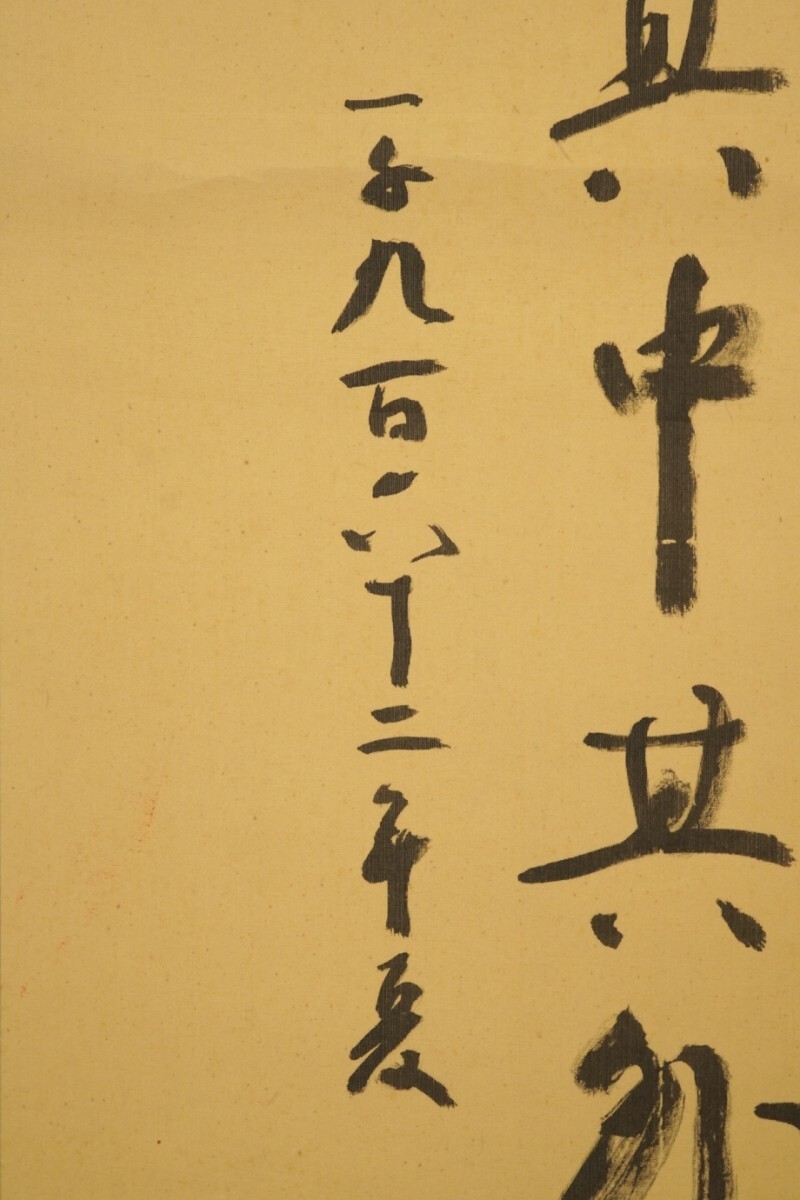 其中其外
一千九百六十二年夏